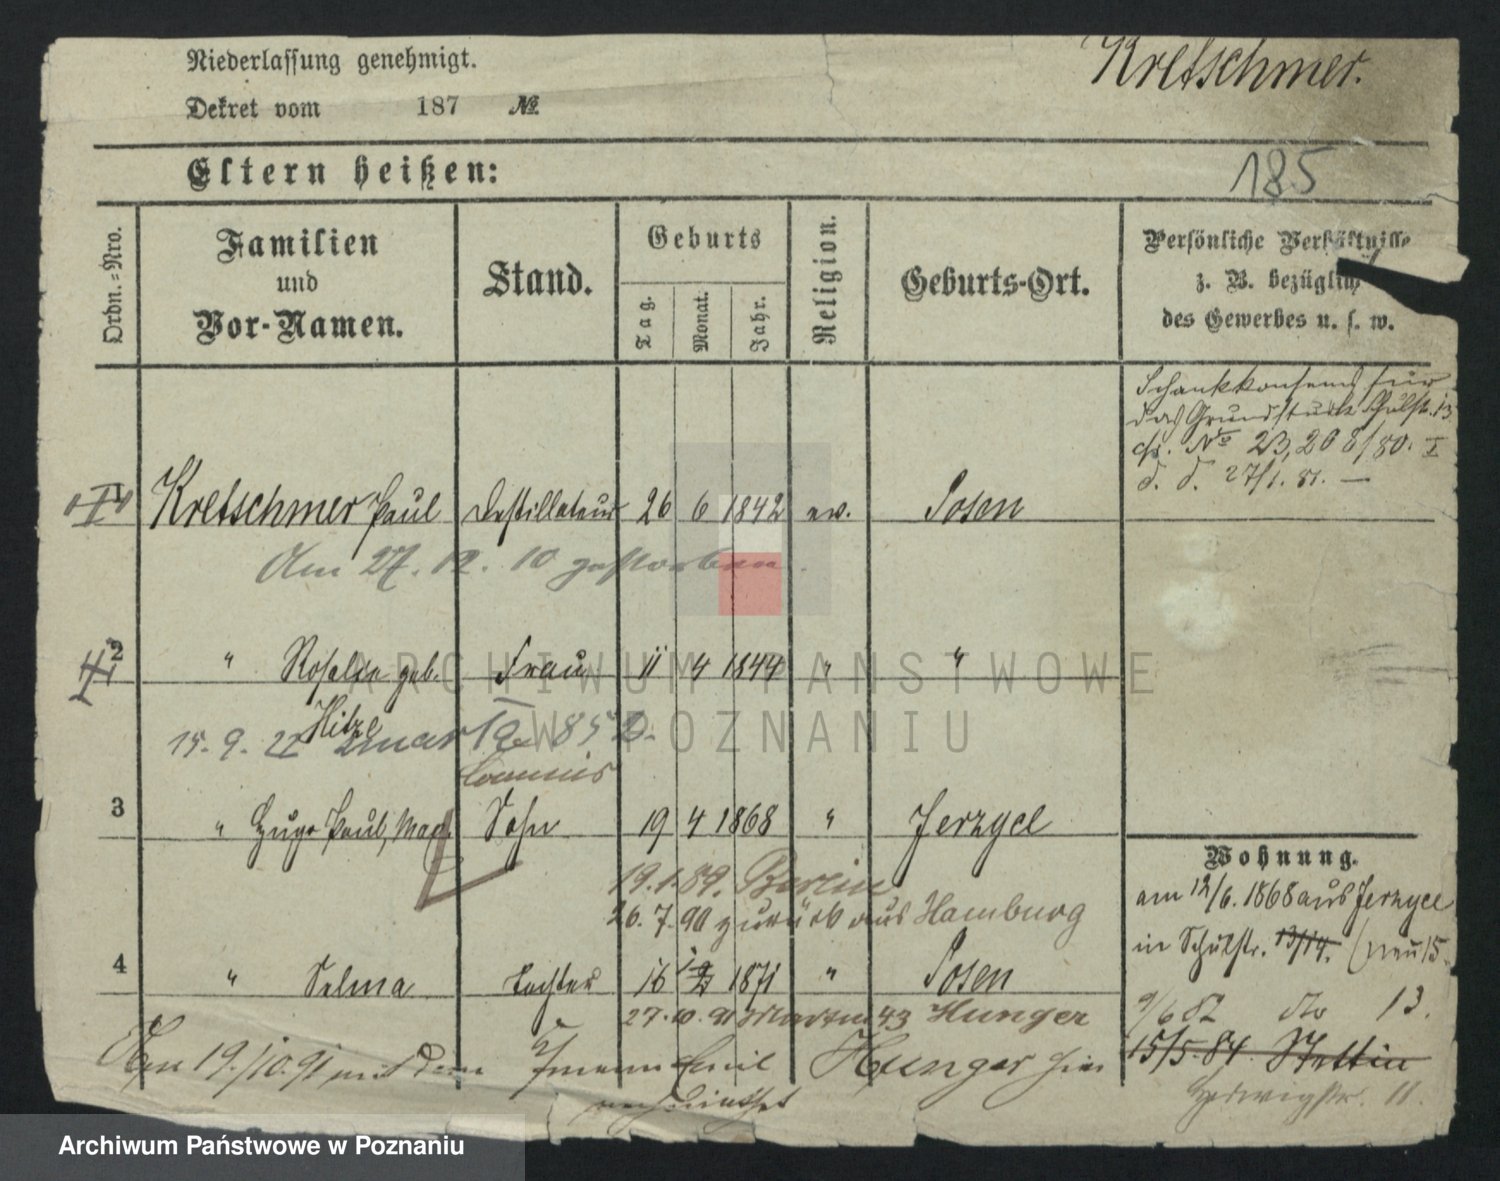 Niederlassung genehmigt.
Kretschmer.
Dekret vom 187 №
185
Eltern heißen:
Ordn.=Nro.
Familien
und
Vor-Namen.
Stand.
Geburts
Tag.
Monat.
Jahr.
Religion.
Geburts-Ort.
Persönliche Verhältnisse
z. B. bezüglich
des Gewerbes u. s. w.
Schankkonsens für
das Grundstück Schulstr. 13
cfr. No 23,208/80. I
d. d. 27/1. 81. —
1 Kretschmer Paul Destillateur 26 6 1842 ev. Posen
Am 27. 12. 10 gestorben.
2 " Rosalie geb. Frau 11 4 1844 " "
Hitze
15. 9. 22
3 " Hugo Paul, Max Sohn 19 4 1868 " Jerzyce
Commis
19.1.89. Berlin
26. 7. 90 zurück aus Hamburg
4 " Selma Tochter 16 1871 " Posen
27. 10. 91 Martin 43 Hunger
Den 19./10.91 mit dem Emil Hunger hier
verheirathet
Wohnung.
am 12/6. 1868 aus Jerzyce
in Schulstr. 13/14. (neu 15.
9/6 82 do 13.
15/5. 84. Stettin
Hedwigstr. 11.
ARCHIWUM PAŃSTWOWE
W POZNANIU
Archiwum Państwowe w Poznaniu